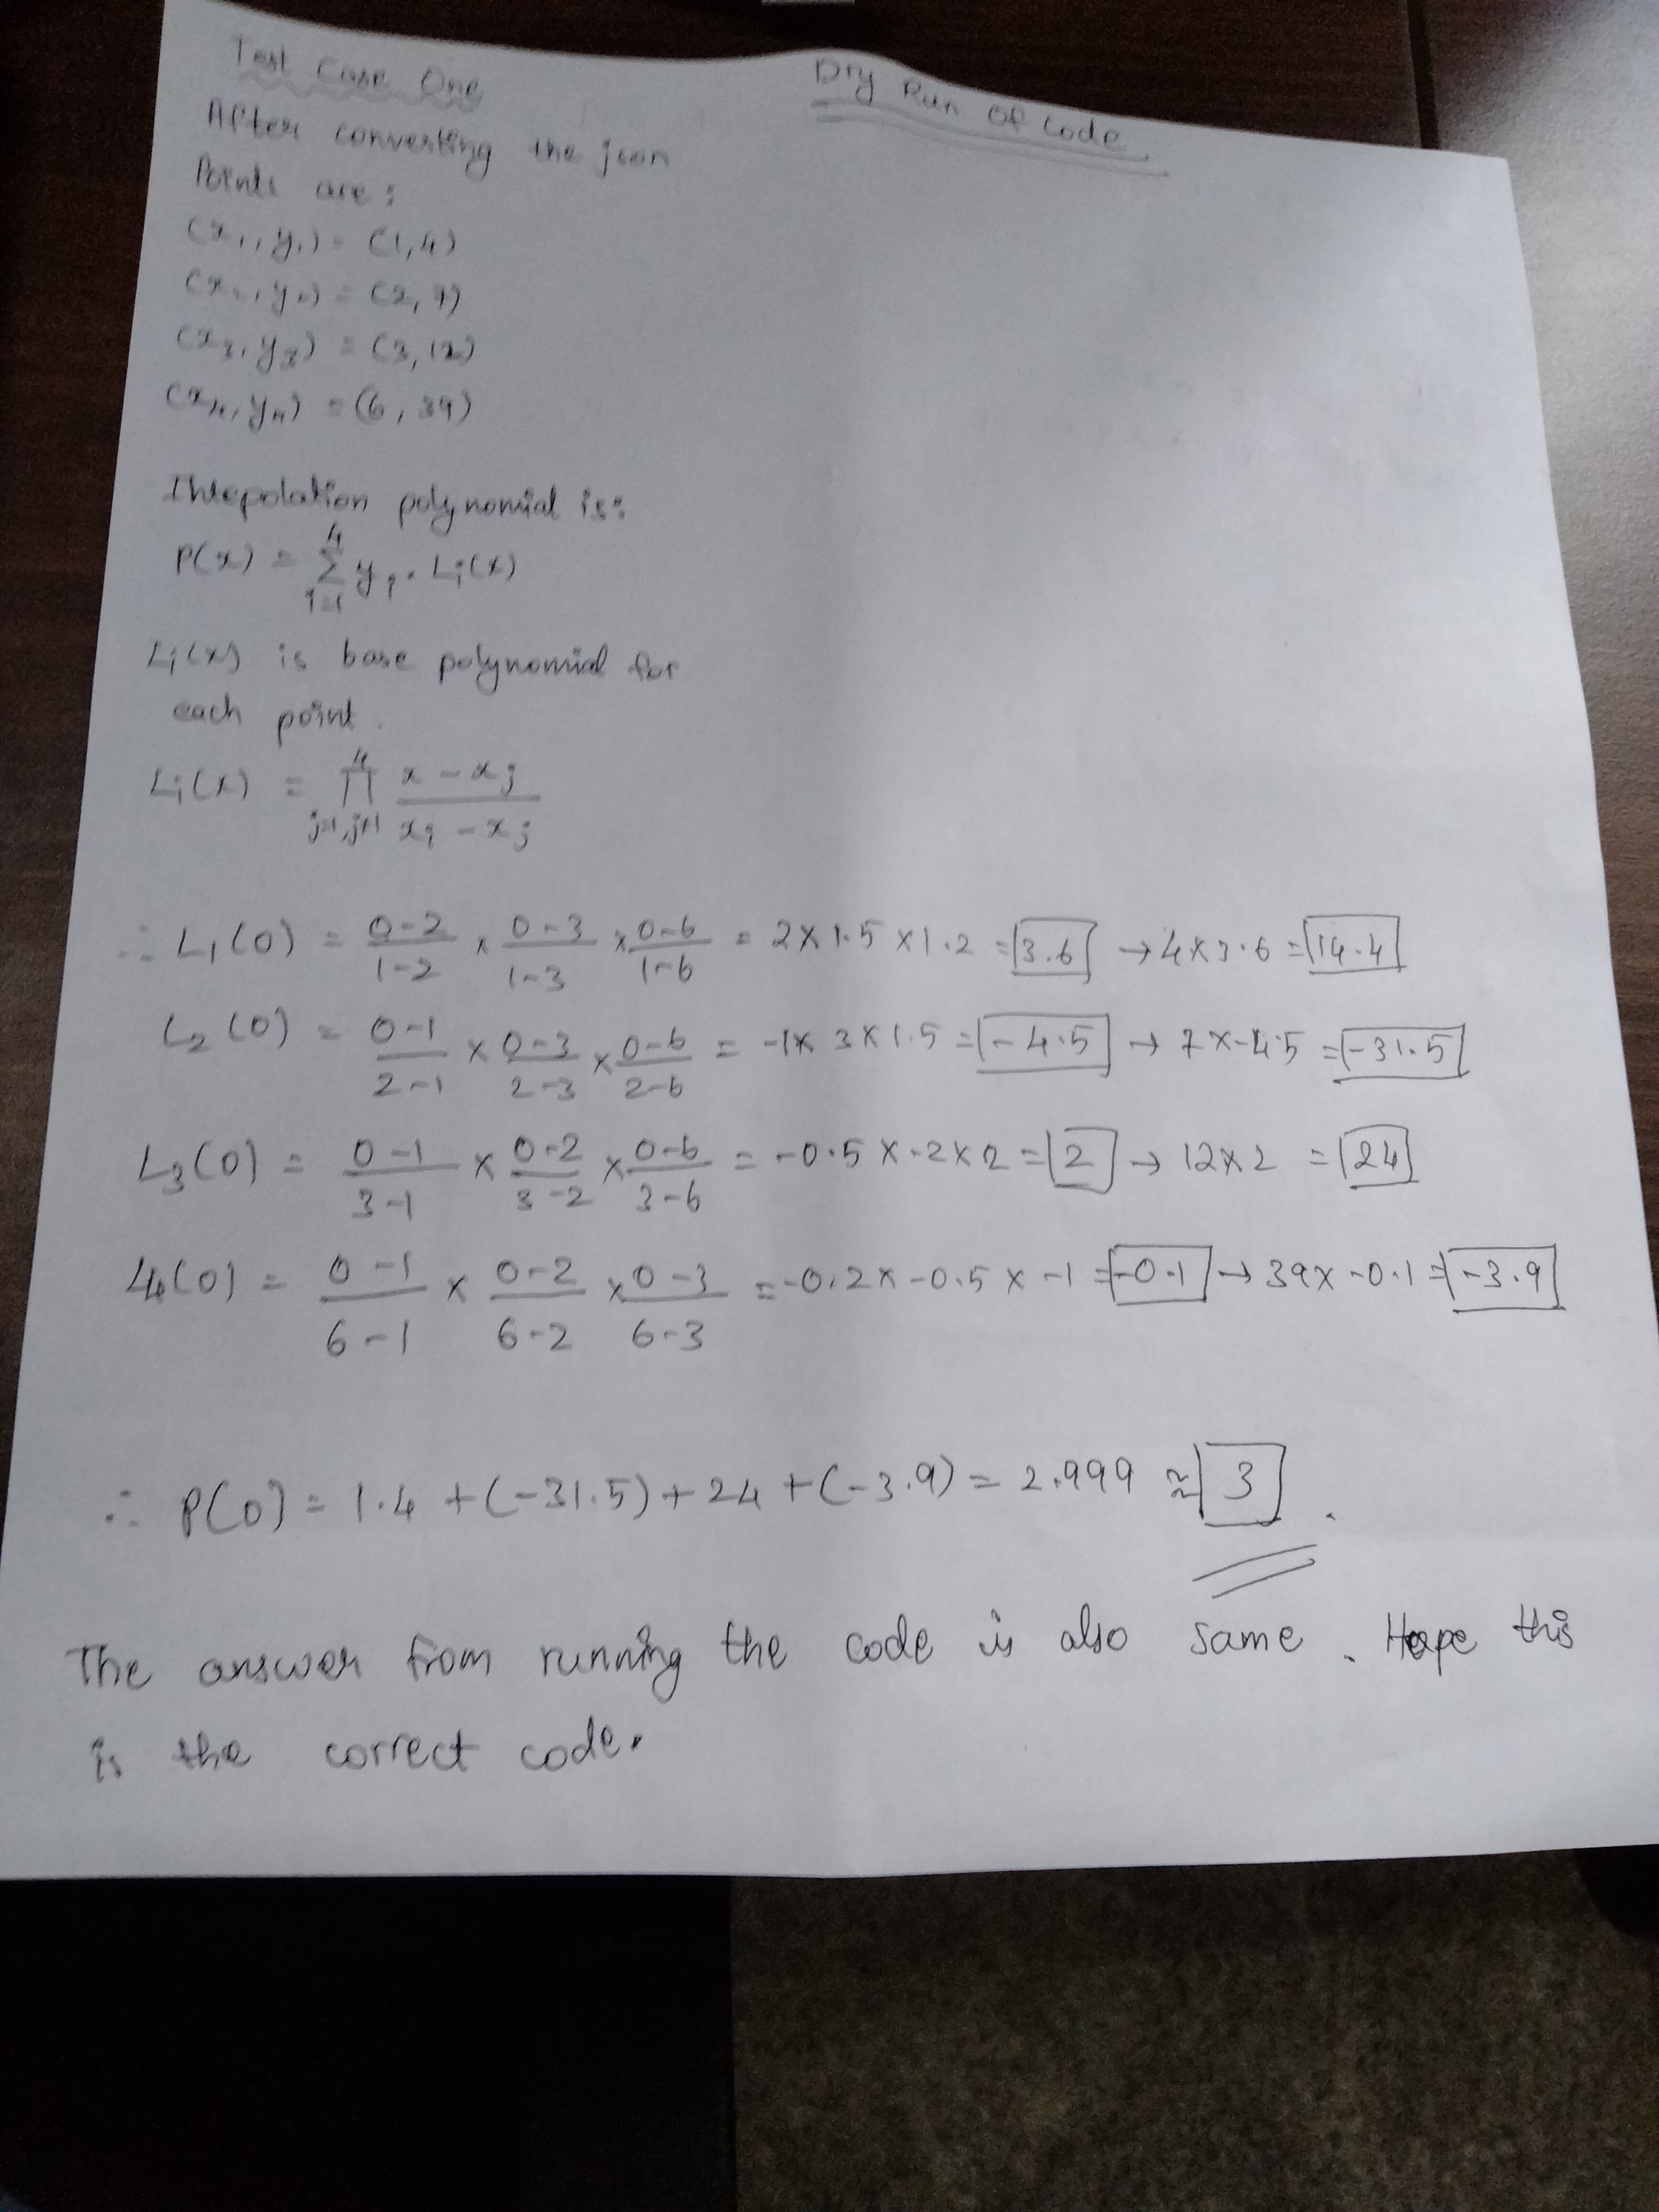 Test Case One
Dry Run Of Code
After converting the json
Points are:
(x₁, y₁) = (1,4)
(x₂, y₂) = (2,7)
(x₃, y₃) = (3,12)
(x₄, y₄) = (6,39)
Intepolation polynomial is:
P(x) = 4 Σ i=1 yᵢ · Lᵢ(x)
Lᵢ(x) is base polynomial for
each point.
Lᵢ(x) = 4 Π j=1, j≠1 x - xⱼ / xᵢ - xⱼ
∴ L₁(0) = 0-2/1-2 × 0-3/1-3 × 0-6/1-6 = 2 × 1.5 × 1.2 = 3.6 → 4 × 3.6 = 14.4
L₂(0) = 0-1/2-1 × 0-3/2-3 × 0-6/2-6 = -1 × 3 × 1.5 = -4.5 → 7 × -4.5 = -31.5
L₃(0) = 0-1/3-1 × 0-2/3-2 × 0-6/3-6 = -0.5 × -2 × 2 = 2 → 12 × 2 = 24
L₄(0) = 0-1/6-1 × 0-2/6-2 × 0-3/6-3 = -0.2 × -0.5 × -1 = -0.1 → 39 × -0.1 = -3.9
∴ P(0) = 1.4 + (-31.5) + 24 + (-3.9) = 2.999 ≈ 3.
The answer from running the code is also same. Hope this
is the correct code.